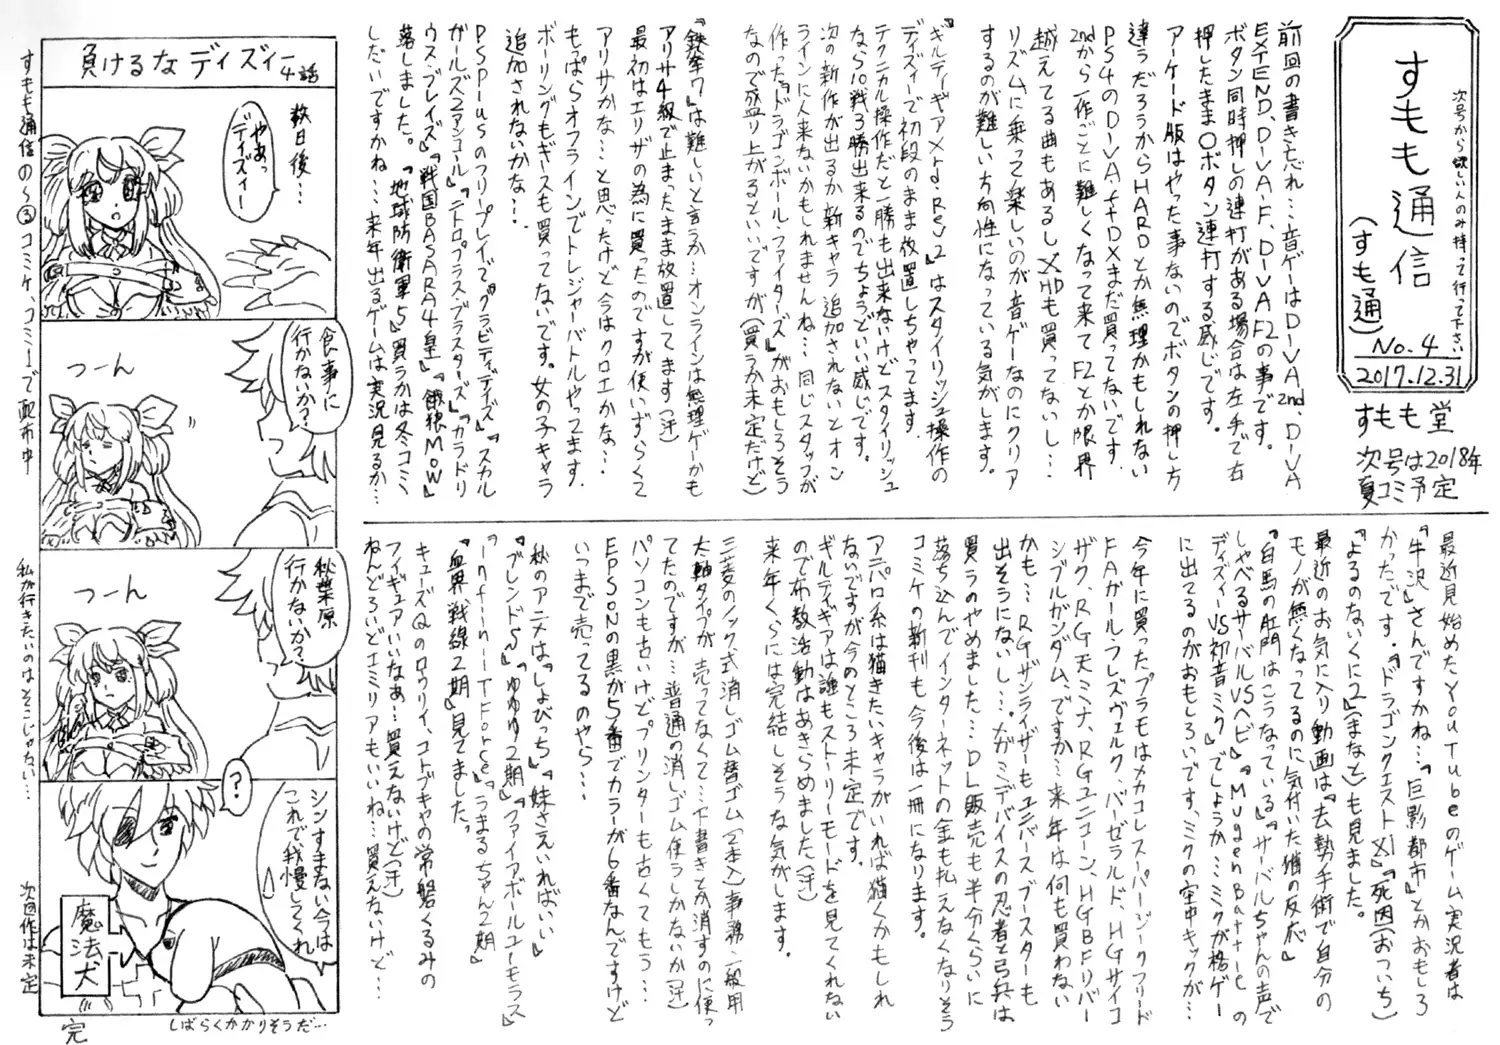 次号から欲しい人のみ持って行って下さい
すもも通信
(すも通)
No.4
2017.12.31
すもも堂
次号は2018年
夏コミ予定
前回の書き忘れ…音ゲーはDIVA2nd、DIVA
EXTEND、DIVA-F、DIVAF2の事です。
ボタン同時押しの連打がある場合は左手で右
押したまま〇ボタン連打する感じです。
アーケード版はやった事ないのでボタンの押し方
違うだろうからHARDとか無理かもしれない
PS4のDIVAFtDXまだ買ってないです。
2ndから一作ごとに難しくなって来てF2とか限界
越えてる曲もあるしXHDも買ってないし…
リズムに乗って楽しいのが音ゲーなのにクリア
するのが難しい方向性になっている気がします。
『ギルティギアXrd:Rev2』はスタイリッシュ操作の
ディズィーで初段のまま放置しちゃってます。
テクニカル操作だと一勝も出来ないけどスタイリッシュ
なら10戦3勝出来るのでちょうどいい感じです。
次の新作が出るか新キャラ追加されないとオン
ラインに人来ないかもしれませんね…同じスタッフが
作った『ドラゴンボール・ファイターズ』がおもしろそう
なので盛り上がるといいですが(買うか未定だけど)
『鉄拳7』は難しいと言うか…オンラインは無理ゲーかも
アリサ4級で止まったまま放置してます(汗)
最初はエリザの為に買ったのですが使いずらくて
アリサかな…と思ったけど今はクロエかな…
もっぱらオフラインでトレジャーバトルやってます。
ボーリングもギースも買ってないです。女の子キャラ
追加されないかな…
PSPlusのフリープレイで『グラビティデイズ』『スカル
ガールズ2アンコール』『ニトロプラスブラスターズ』『カラドリ
ウス・ブレイズ』『戦国BASARA4皇』『餓狼MOW』
落しました。『地球防衛軍5』買うかは冬コミ
しだいですかね…来年出るゲームは実況見るか…
最近見始めたYouTubeのゲーム実況者は
『牛沢』さんですかね…『巨影都市』とかおもしろ
かったです。『ドラゴンクエストXI』『死因(おついち)
『よるのないくに2(まなと)も見ました。
最近のお気に入り動画は『去勢手術で自分の
モノが無くなってるのに気付いた猫の反応』
『白馬の肛門はこうなっている』『サーバルちゃんの声で
しゃべるサーバルVSヘビ』『MugenBattleの
ディズィーVS初音ミク』でしょうか…ミクが格ゲー
に出てるのがおもしろいです、ミクの空中キックが…
今年に買ったプラモはメカコレスパージークフリード
FAガールフレズヴェルク、バーゼラルド、HGサイコ
ザク、RG天ミナ、RGユニコーン、HGBFリバー
シブルガンダム、ですか…来年は何も買わない
かも…RGザンライザーもユニバースブースターも
出そうにないし…メガミデバイスの忍者と弓兵は
買うのやめました…DL販売も半分くらいに
落ち込んでインターネットの金も払えなくなりそう
コミケの新刊も今後は一冊になります。
アニパロ系は描きたいキャラがいれば描くかもしれ
ないですが今のところ未定です。
ギルティギアは誰もストーリーモードを見てくれない
ので布教活動はあきらめました(汗)
来年くらには完結しそうな気がします。
三菱のノック式消しゴム替ゴム(2本入)事務一般用
太軸タイプが売ってなくて…下書きとか消すのに使っ
てたのですが…普通の消しゴム使うしかないか(汗)
パソコンも古いけどプリンターも古くてもう…
EPSONの黒が5番でカラーが6番なんですけど
いつまで売ってるのやら…
秋のアニメは『しょびっち』『妹さえいればいい』
『ブレンドS』『ゆゆゆ2期』『ファイアボールユーモラス』
『infiniTForce』『うまるちゃん2期』
『血界戦線2期』見てました。
キューズQのロウリィ、コトブキヤの常磐くるみの
フィギュアいいなぁ…買えないけど(汗)
ねんどろいどエミリアもいいね…買えないけど…
負けるなディズィー4話
数日後…
やあっ
ディズィー
食事に
行かないか?
つーん
秋葉原
行かないか?
つーん
?
シンすまない今は
これで我慢してくれ
魔法犬
しばらくかかりそうだ…
完
すもも通信の1~3コミケ、コミ1で配布中
私が行きたいのはそこじゃない…
次回作は未定